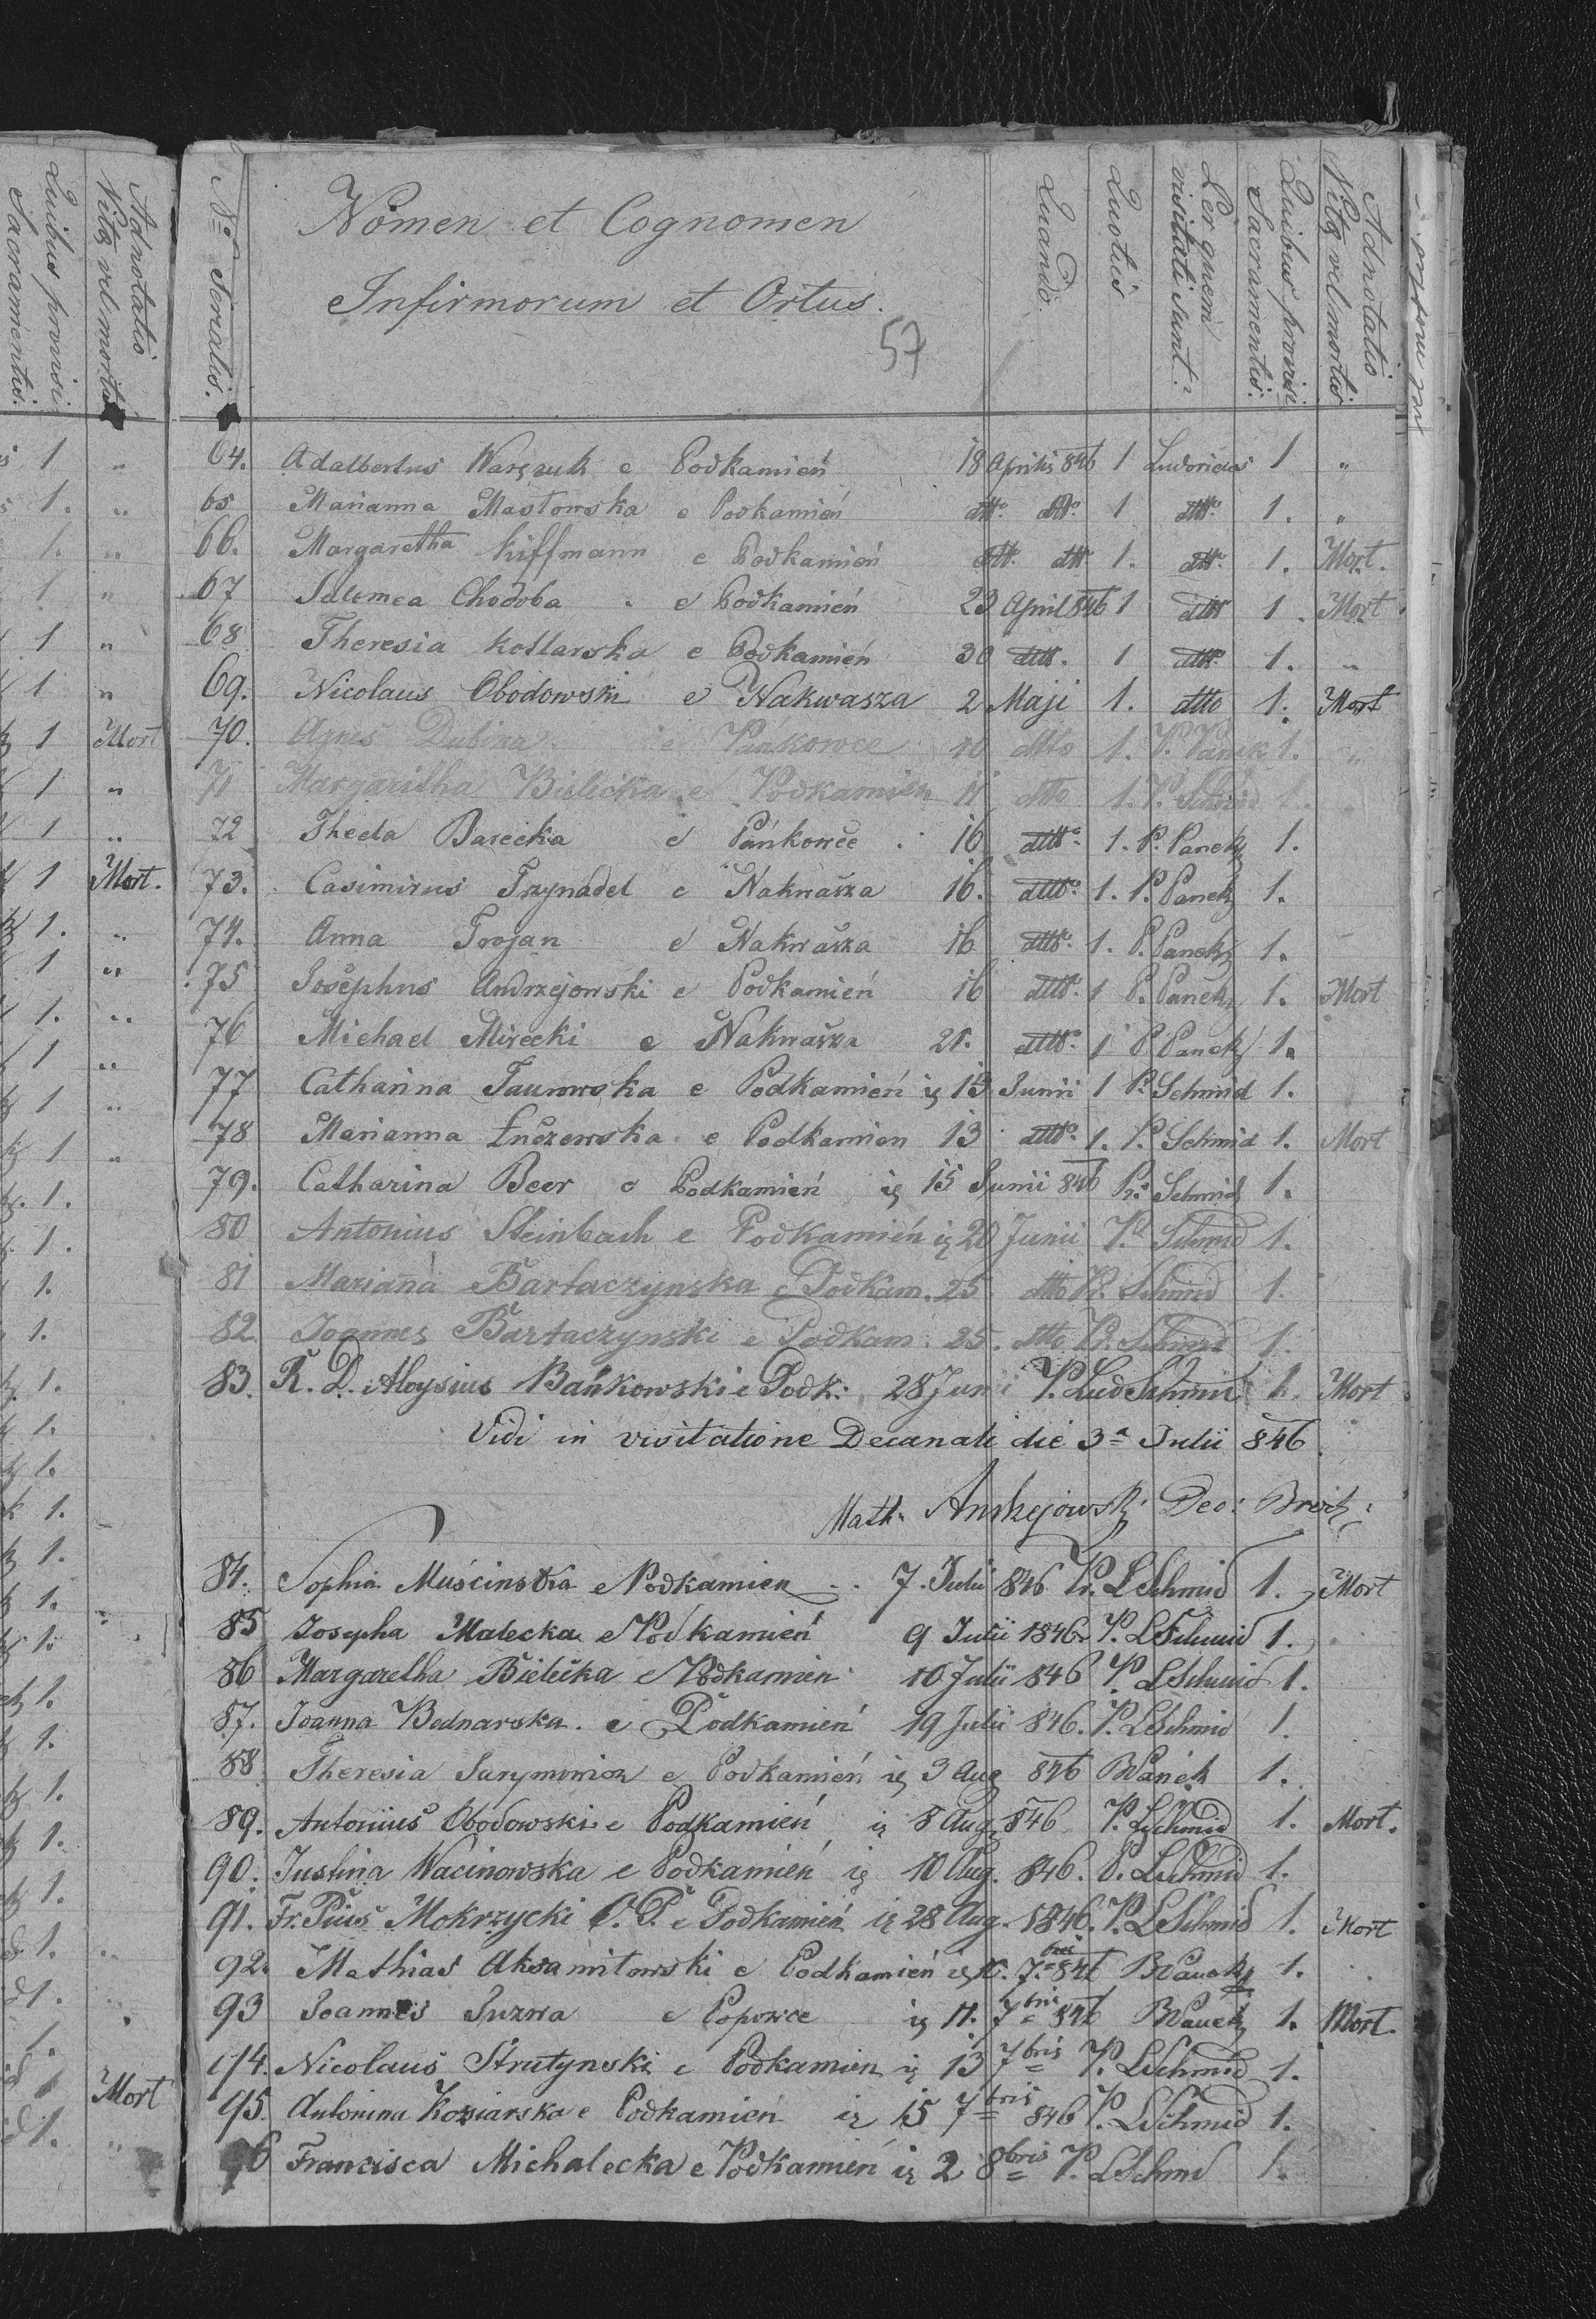 Adnotatio
Vitę vel mortis
Quibus provisi
Sacramentis.
Nº Serialis.
Nomen et Cognomen
Infirmorum et Ortus.
57
Quando
Quoties
Per quem
visitati sunt?
Quibus provisi
Sacramentis.
Adnotatio
Vitę vel mortis
64. Adalbertus e Podkamień 18 Aprilis 846 1 Ludovicus 1 "
65 Marianna Masłowska e Podkamień dtto dtto 1 dtto 1. "
66. Margaretha Kiffmann e Podkamień dtto dtto 1. dtto 1. Mort.
67 Salomea Chodoba e Podkamień 23 April 846 1 dtto 1. Mort
68 Theresia Kotlarska e Podkamień 30 dtto. 1 dtto 1. "
69. Nicolaus Obodowski e Nakwasza 2 Maji 1. dtto 1. Mort
70. Agnes Dubina e Pańkowce 10 dtto 1. P. Panek 1. "
71 Margaritha Bielecka e Podkamien 11 dtto 1. P. Schmid 1.
72 Thecla Barecka e Pańkowce 16 dtto 1. P. Panek 1.
73. Casimirus Trynadel e Nakwasza 16. dtto 1. P. Panek 1.
74. Anna Trojan e Nakwasza 16 dtto 1. P. Panek 1.
75 Josephus Andrzejowski e Podkamień 16 dtto 1 P. Panek 1. Mort
76 Michael Mirecki e Nakwasza 21. dtto 1 P Panek 1.
77 Catharina Taurowska e Podkamień ię 13 Junii 1 P. Schmid 1.
78 Marianna Łuczewska e Podkamien 13 dtto 1. P. Schmid 1. Mort
79. Catharina Beer e Podkamień ię 15 Junii 846 Pr. Schmid 1.
80 Antonius Steinbach e Podkamień ię 20 Junii P. Schmid 1.
81 Marianna Bartaczynska e Podkam. 25 dtto Pr. Schmid 1.
82 Joannes Bartaczynski e Podkam. 25. dtto Pr. Schmid 1.
83. R. D. Aloysius Bańkowski e Podk: 28 Juni P. Lud Schmid 1. Mort
Vidi in visitatione Decanali die 3ª Julii 846
Math. Andrzejowski Dec:
84. Sophia Muscinska e Podkamien 7. Julii 846 Pr. LSchmid 1. Mort
85 Josepha Malecka e Podkamień 9 Julii 1846 P. LSchmid 1.
86 Margaretha Bielecka e Podkamien 10 Julii 846 P. LSchmid 1.
87. Joanna Bednarska. e Podkamień 19 Julii 846. P. LSchmid 1.
88 Theresia e Podkamień ię 3 Aug 846 P. Panek 1.
89. Antonius Obodowski e Podkamień ię 8 Aug 846 P. LSchmid 1. Mort.
90. Justina Wacinowska e Podkamień ię 10 Aug. 846. P. LSchmid 1.
91. Fr. Pius Mokrzycki O.P. e Podkamień ię 28 Aug. 1846. P. LSchmid 1. Mort
92. Mathias Aksamitowski e Podkamień ię 10. 7bris 846 P. Panek 1.
93 Joannes Surwa e Popowce ię 11. 7bris 846 P. Panek 1. Mort.
94. Nicolaus Strutynski e Podkamien ię 13 7bris P. LSchmid 1.
95. Antonina Koziarska e Podkamień ię 15 7bris 846 P. LSchmid 1.
96 Francisca Michalecka e Podkamień ię 2 8bris P. LSchmd 1.